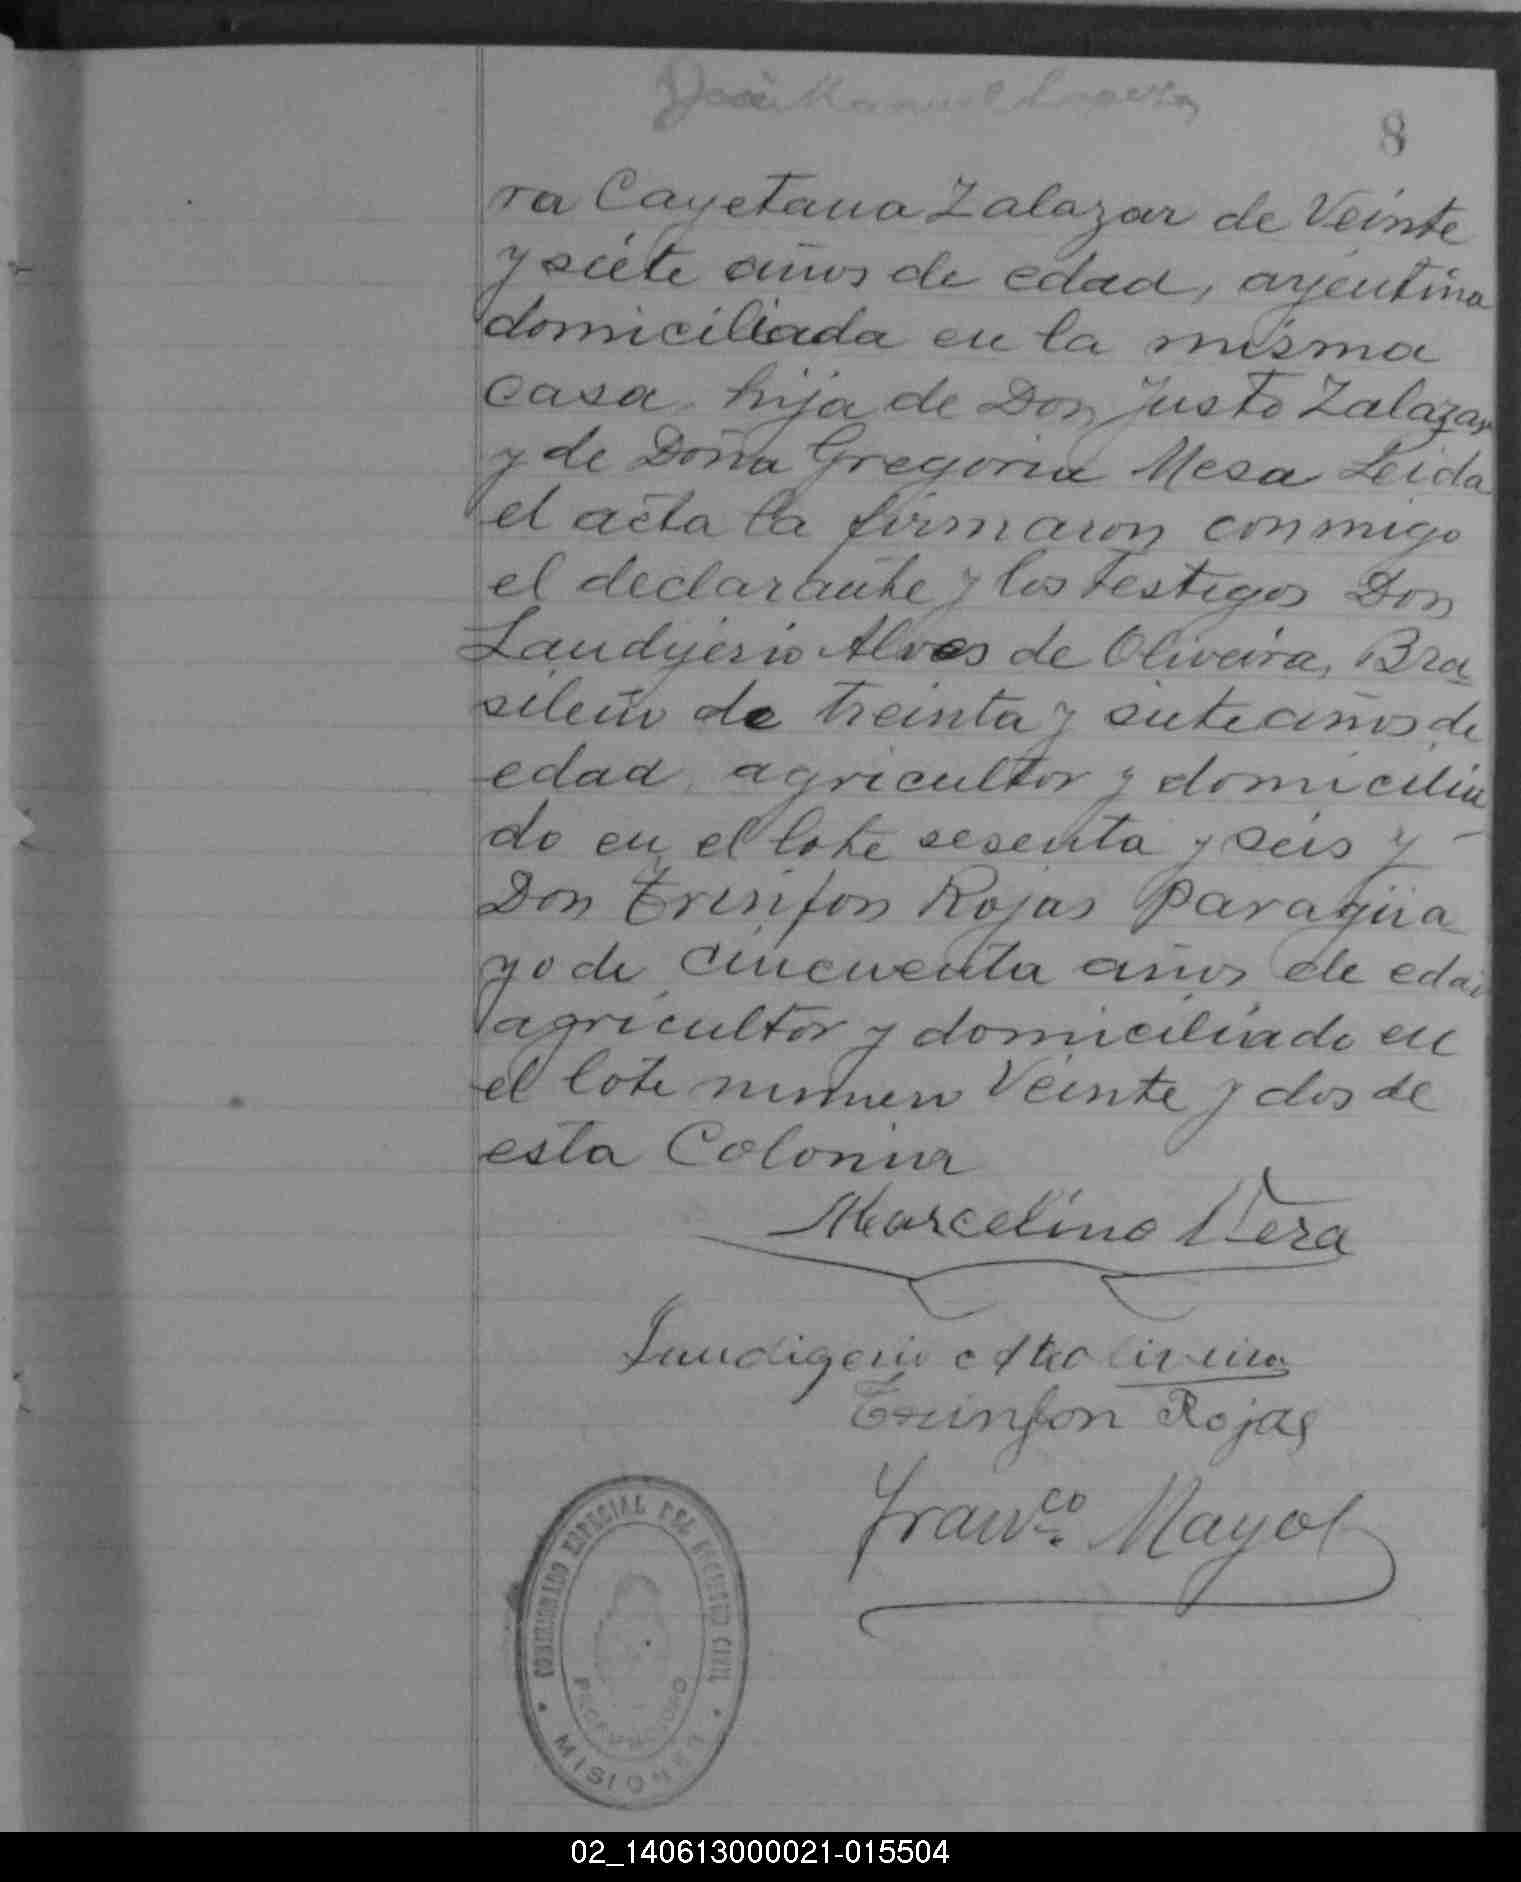 José Manuel
8
ra Cayetana Zalazar de Veinte
y siete años de edad, arjentina
domiciliada en la misma
casa hija de Don Justo Zalazar
y de Doña Gregoria Mesa Leida
el acta la firmaron conmigo
el declarante y los testigos Don
Laudijerio Alves de Oliveira, Bra
sileño de treinta y siete años de
edad, agricultor y domicilia
do en el lote sesenta y seis y
Don Trinifon Rojas Paragüa
yo de cincuenta años de edad
agricultor y domiciliado en
el lote numero Veinte y dos de
esta Colonia
Marcelino Vera
Laudigerio
Trinfon Rojas
Franco. Mayol
COMISIONADO ESPECIAL DEL REGISTRO CIVIL
MISIONES
02_140613000021-015504